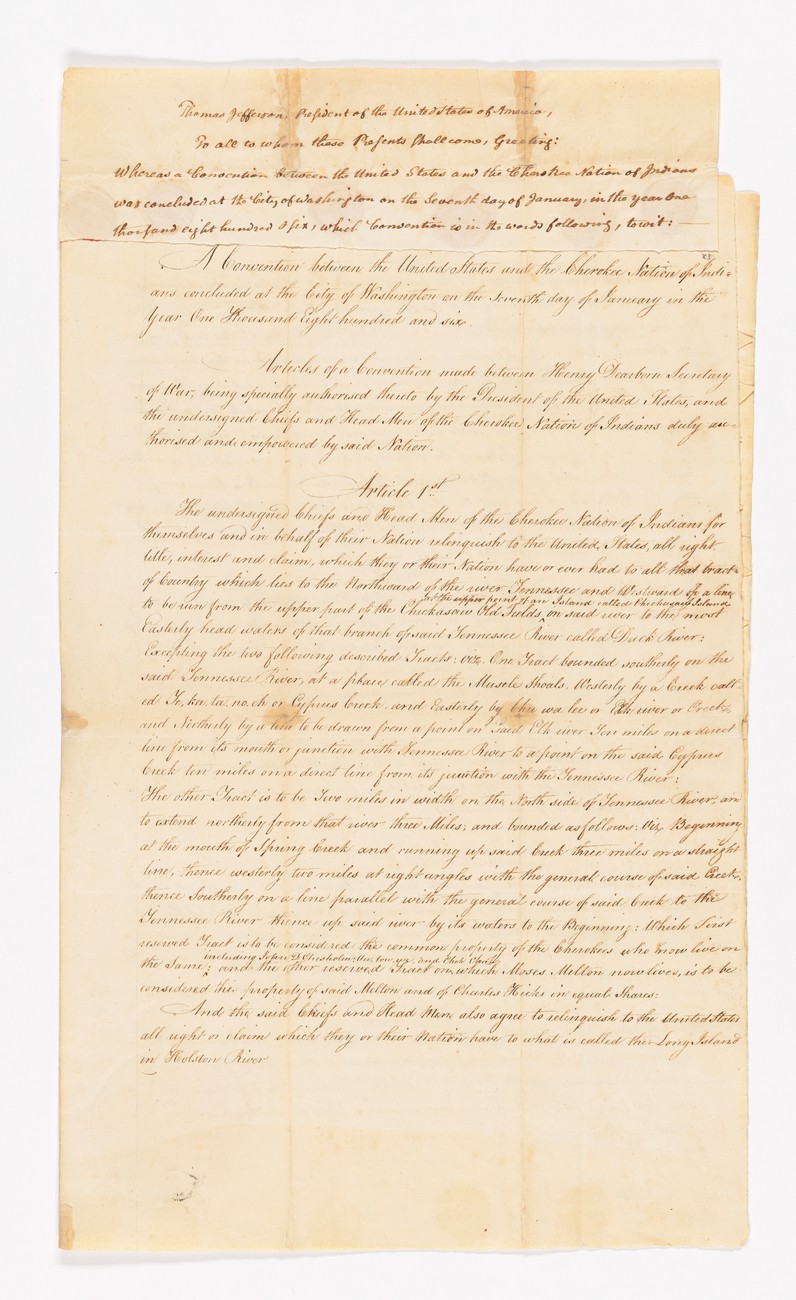 Thomas Jefferson, President of the United States of America,
To all to whom these Presents shall come, Greeting:
Whereas a Convention between the United States and the Cherokee Nation of Indians
was concluded at the City of Washington on the Seventh day of January, in the year One
thousand eight hundred & six, which Convention is in the words following, to wit:
A Convention between the United States and the Cherokee Nation of Indi-
ans concluded at the City of Washington on the Seventh day of January in the
Year One Thousand Eight hundred and six.
Articles of a Convention made between Henry Dearborn Secretary
of War, being specially authorised thereto by the President of the United States, and
the undersigned Chiefs and Head Men of the Cherokee Nation of Indians duly au-
thorised and empowered by said Nation.
Article 1st
The undersigned Chiefs and Head Men of the Cherokee Nation of Indians for
themselves and in behalf of their Nation relinquish to the United States, all right
title, interest and claim, which they or their Nation have or ever had to all that tract
of Country which lies to the Northward of the river Tennessee and Westward of a line
at the upper point of an Island called Chickasaw Island
to be run from the upper part of the Chickasaw Old Fields, on said river to the most
Easterly head waters of that branch of said Tennessee River called Duck River:
Excepting the two following described Tracts: viz. One Tract bounded southerly on the
said Tennessee River, at a place called the Muscle Shoals, Westerly by a Creek call-
ed Te, ka, ta, no, eh or Cyprus Creek, and Easterly by Chu wa lee or Elk river or Creek,
and Northerly by a line to be drawn from a point on said Elk river Ten miles on a direct
line from its mouth or junction with Tennessee River to a point on the said Cyprus
Creek ten miles on a direct line from its junction with the Tennessee River:
The other Tract is to be Two miles in width on the North side of Tennessee River, an
to extend northerly from that river three Miles, and bounded as follows: viz. Beginning
at the mouth of Spring Creek and running up said Creek three miles on a straight
line, thence westerly two miles at right angles with the general course of said Creek,
thence Southerly on a line parallel with the general course of said Creek to the
Tennessee River thence up said river by its waters to the Beginning: Which First
reserved Tract is to be considered the common property of the Cherokees who now live on
including John D. Chisholm,
the same; and the other reserved Tract on which Moses Melton now lives, is to be
considered the property of said Melton and of Charles Hicks in equal Shares:
And the said Chiefs and Head Men also agree to relinquish to the United States
all right or claim which they or their Nation have to what is called the Long Island
in Holston River